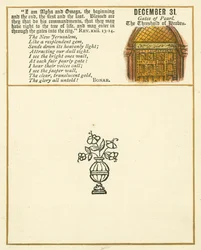 "I am Alpha and Omega, the beginning
and the end, the first and the last. Blessed are
they that do his commandments, that they may
have right to the tree of life, and may enter in
through the gates into the city." REV. xxii. 13-14.
The New Jerusalem,
Like a resplendent gem,
Sends down its heavenly light;
Attracting our dull sight.
I see the bright ones wait,
At each fair pearly gate;
I hear their voices call;
I see the jasper wall,
The clear, translucent gold,
The glory all untold! BONAR.
DECEMBER 31.
Gates of Pearl.
The Threshold of Heaven.